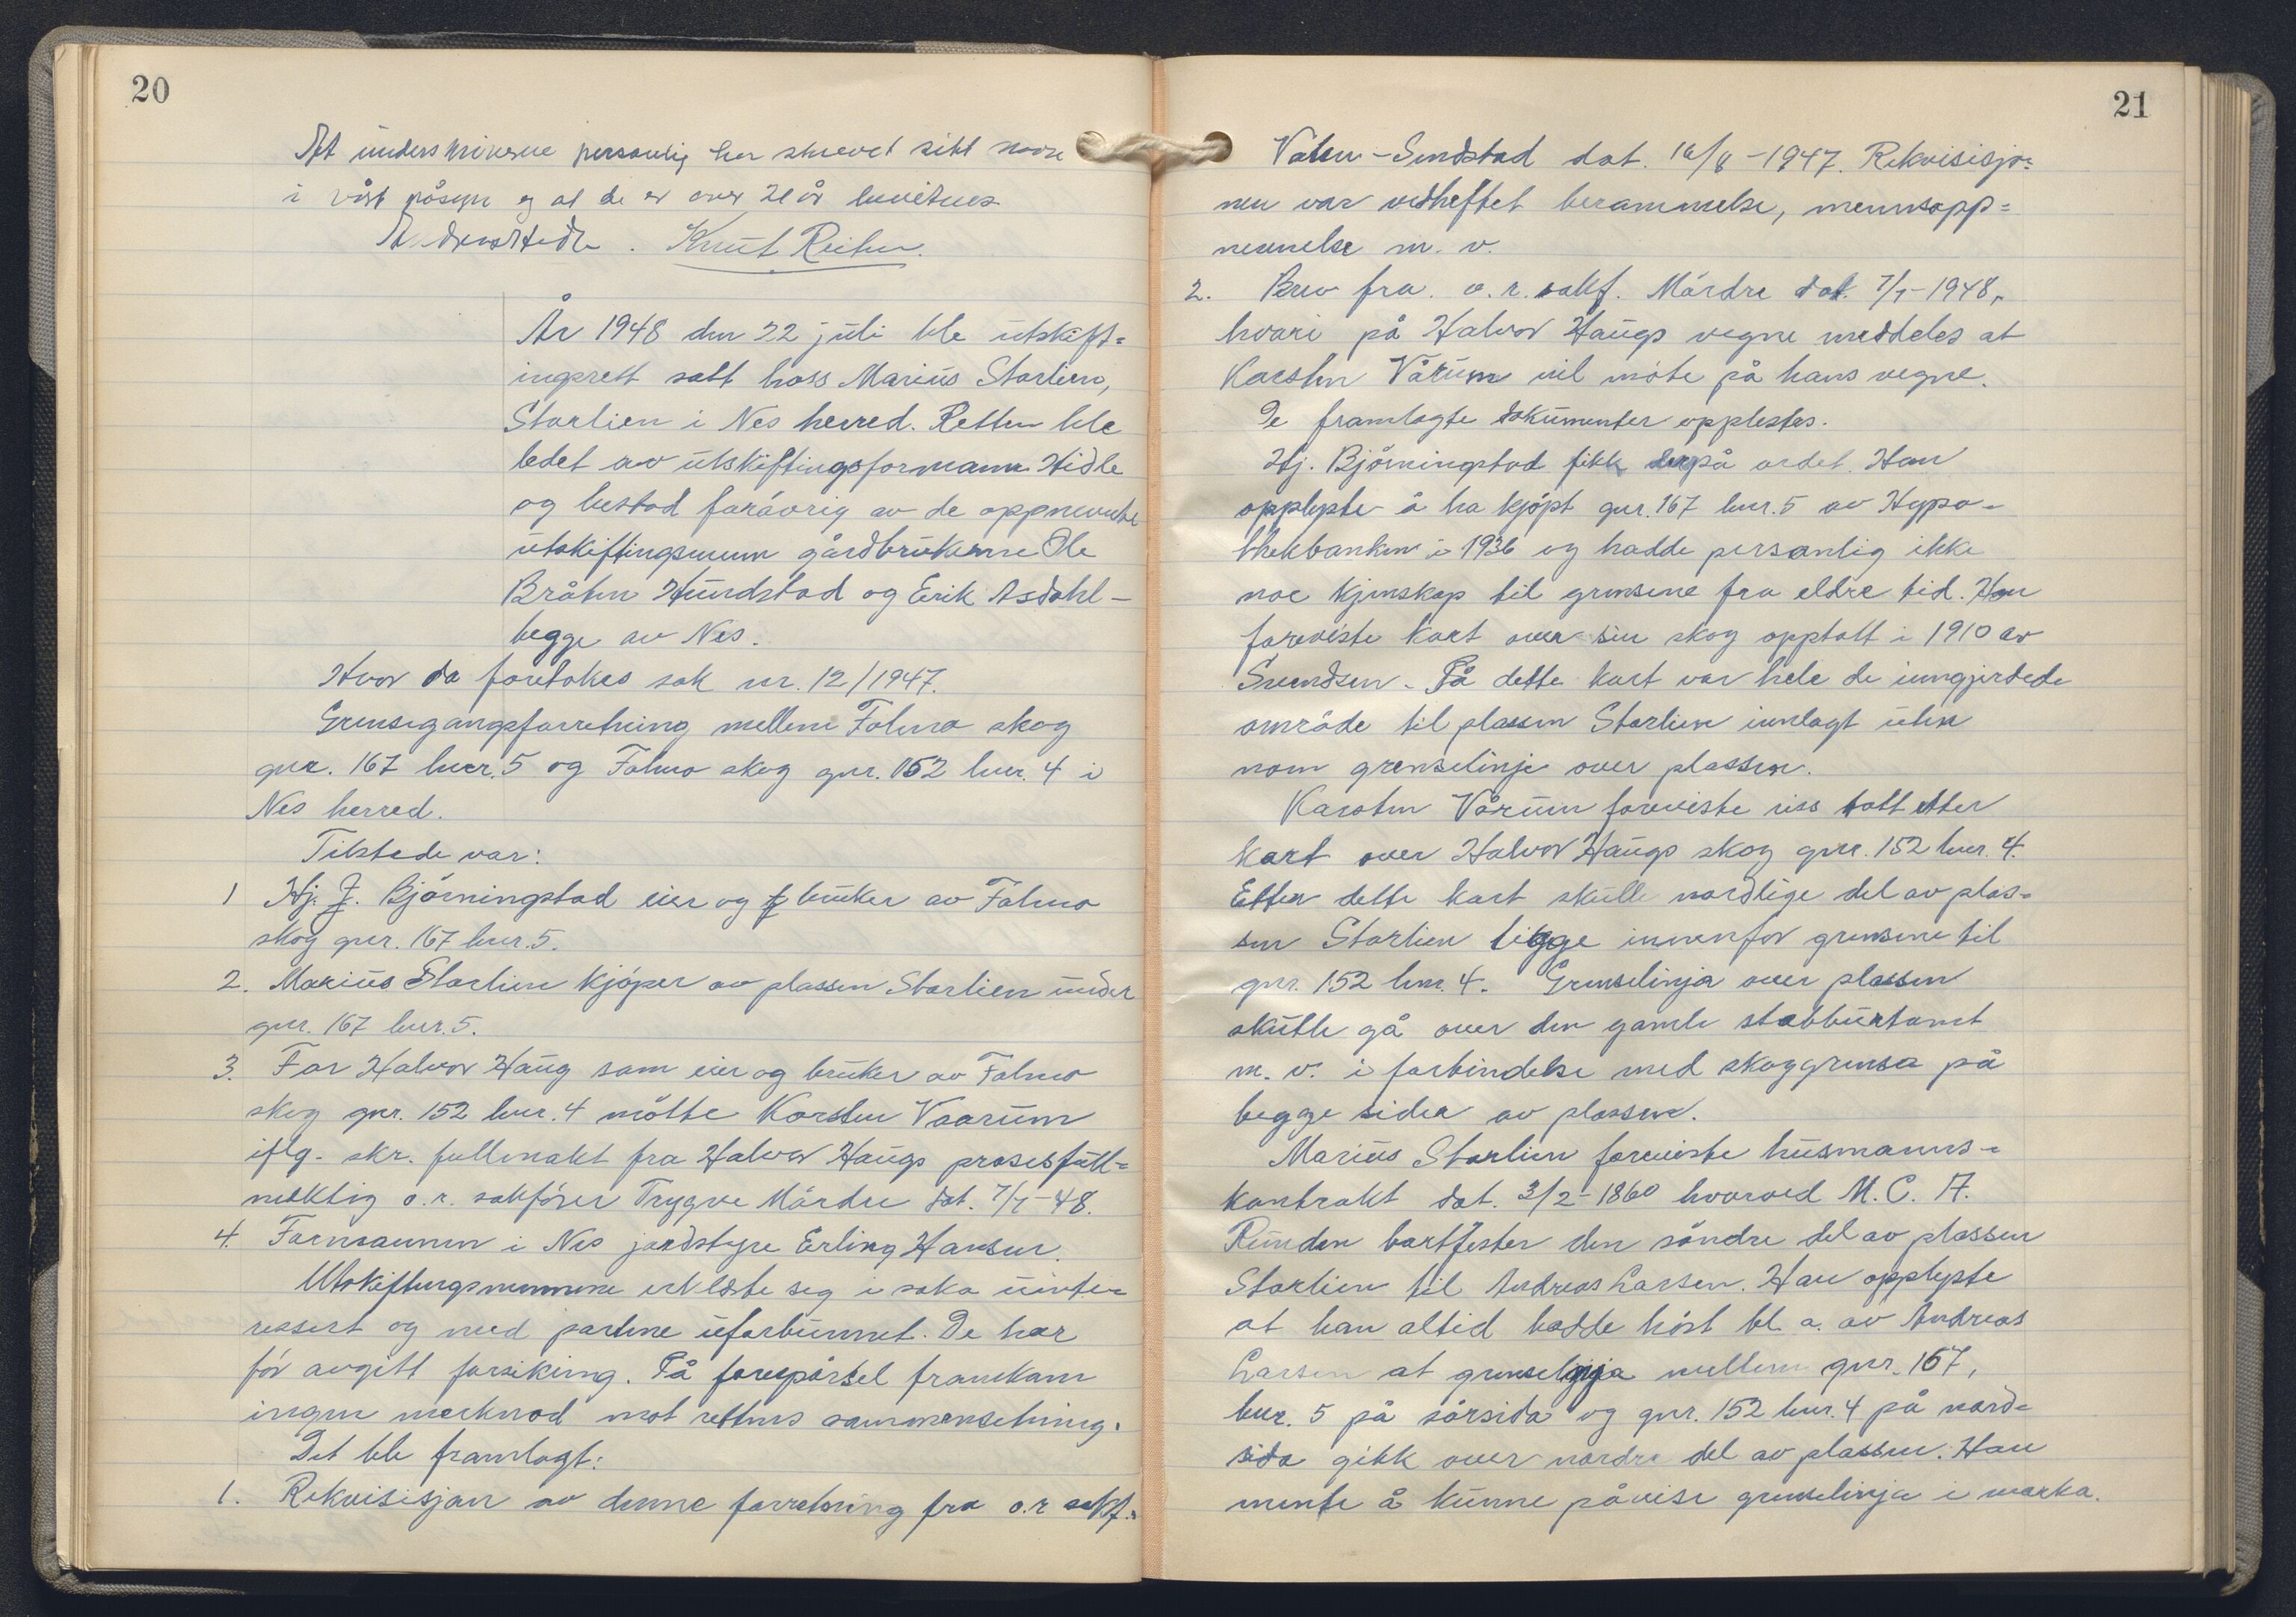 20
At underskriverne personlig har skrevet sitt navn
i vårt påsyn og at de er over 21 år bevitnes
Knut
År 1948 den 22 juli ble utskift=
ingsrett satt hoss Marius Starlien,
Starlien i Nes herred. Retten ble
ledet av utskiftingsformann Hidle
og bestod forövrig av de oppnevnte
utskiftingsmenn gårdbrukerne Ole
Bråten Hundstad og Eirik Asdahl –
begge av Nes.
Hvor da foretokes sak nr. 12/1947.
Grensegangsforretning mellem Folmo skog
gnr. 167 bnr. 5 og Folmo skog gnr. 152 bnr. 4 i
Nes herred.
Tilstede var:
1 Hj. J. Björningstad eier og bruker av Folmo
skog gnr. 167 bnr. 5.
2. Marius Starlien kjöper av plassen Starlien under
gnr. 167 bnr. 5.
3. For Halvor Haug som eier og bruker av Folmo
skog gnr. 152 bnr. 4 mötte Karsten Vaarum
iflg. skr. fullmakt fra Halvor Haugs prosesfull=
mektig o.r. sakförer Trygve Mördre dat. 7/7-48.
4. Formannen i Nes jordstyre Erling Hansen.
Utskiftingsmennene erklærte seg i saka uinte=
ressert og med partene uforbunnet. De har
för avgitt forsikring. På forespörsel framkom
ingen merknad mot rettens sammensetning.
Det ble framlagt:
1. Rekvisisjon av denne forretning fra o.r. sakf.
21
dat. 16/6-1947. Rekvisisjo=
nen var vedheftet berammelse, mennsopp=
nevnelse m. v.
2. Brev fra o.r. sakf. Mördre dat. 7/7-1948,
hvori på Halvor Haugs vegne meddeles at
Karsten Vårum vil möte på hans vegne.
De framlagte dokumenter opplestes.
Hj. Björningstad fikk derpå ordet. Han
opplyste å ha kjöpt gnr. 167 bnr. 5 av Hypo-
thekbanken i 1936 og hadde personlig ikke
noe kjenskap til grensene fra eldre tid. Han
foreviste kart over sin skog opptatt i 1910 av
Svendsen. På dette kart var hele de inngjerdede
område til plassen Starlien innlagt uten
noen grenselinje over plassen.
Karsten Vårum foreviste riss tatt etter
kart over Halvor Haugs skog gnr. 152 bnr. 4.
Etter dette kart skulle nordlige del av plas=
sen Starlien ligge innenfor grensene til
gnr. 152 bnr. 4. Grenselinja over plassen
skulle gå over den gamle stabburtomt
m. v. i forbindelse med skoggrensa på
begge sider av plassen.
Marius Starlien foreviste husmanns=
kontrakt dat. 3/2-1860 hvorved M. C. A.
Runden bortfester den söndre del av plassen
Starlien til Andreas Larsen. Han opplyste
at han altid hadde hört bl. a. av Andreas
Larsen at grenselinja mellem gnr. 167,
bnr. 5 på sörsida og gnr. 152 bnr. 4 på nord=
sida gikk over nordre del av plassen. Han
mente å kunne påvise grenselinja i marka.